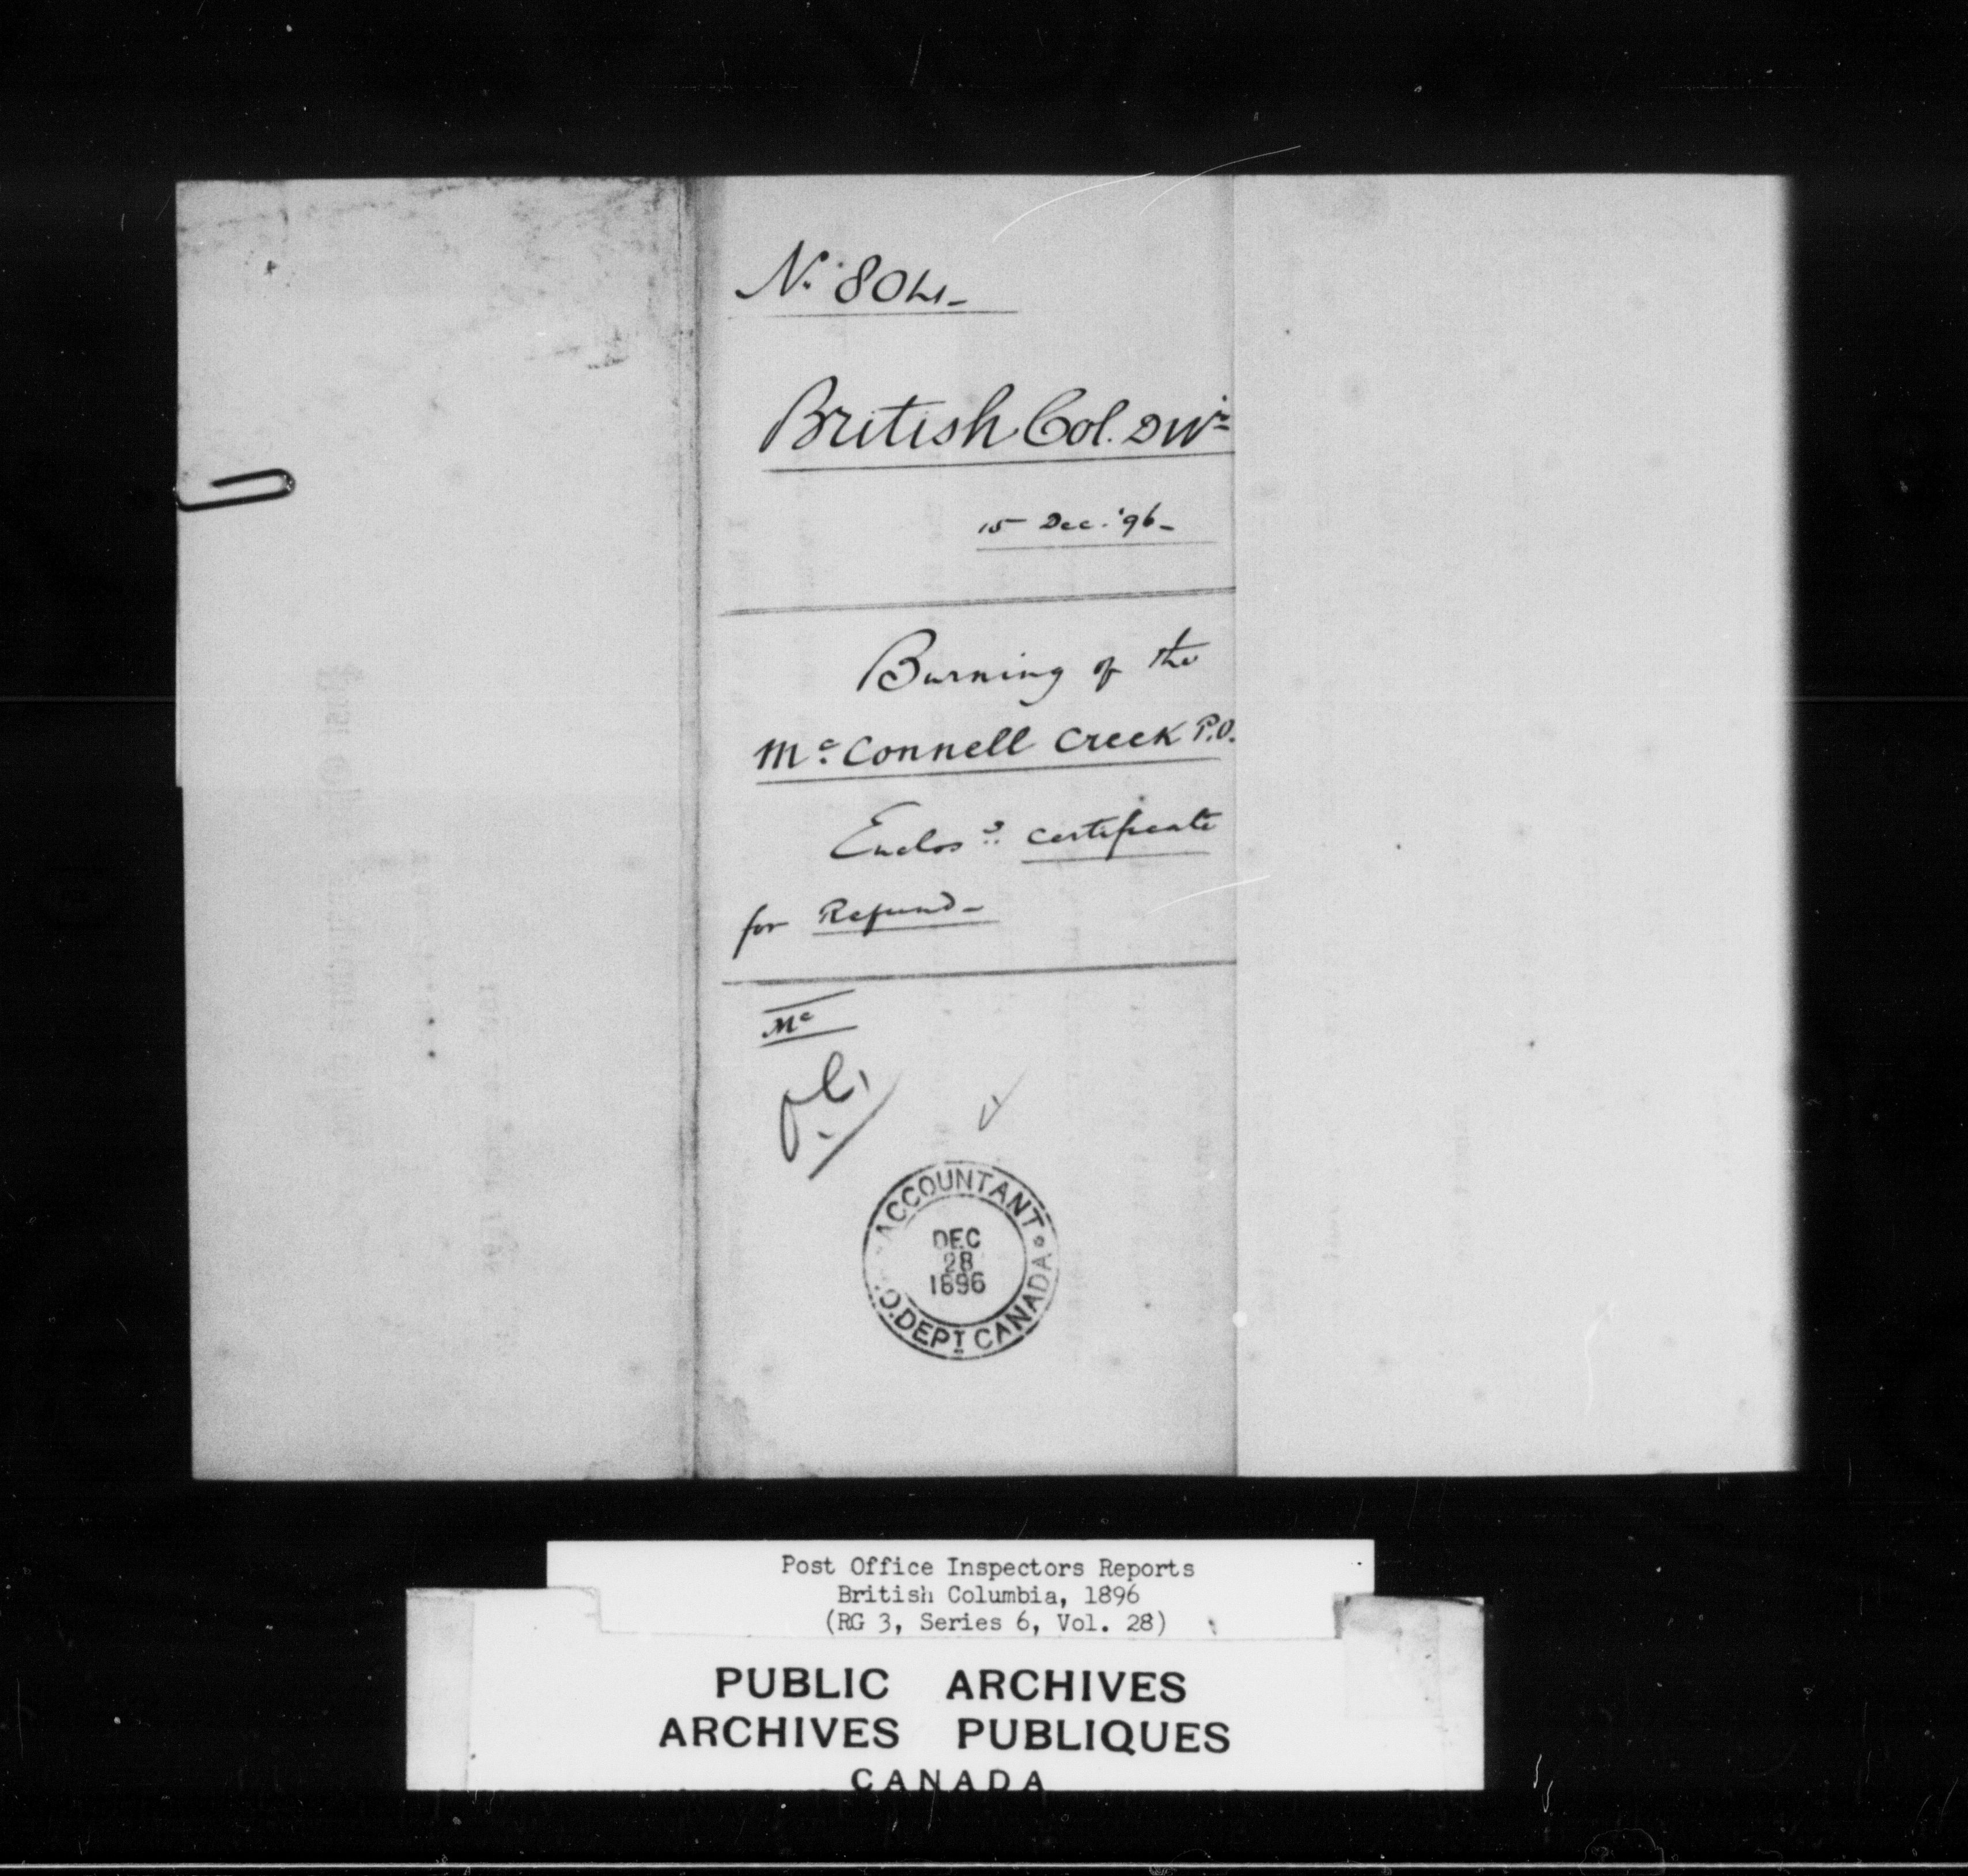 No. 804-
British Col. Divn
15 Dec. '96-
Burning of the
Mc Connell Creek P.O.
Enclos.g certificate
for Refund-
Mc
ACCOUNTANT
DEC
28
1896
P.O. DEPT CANADA
Post Office Inspectors Reports
British Columbia, 1896
(RG 3, Series 6, Vol. 28)
PUBLIC ARCHIVES
ARCHIVES PUBLIQUES
CANADA